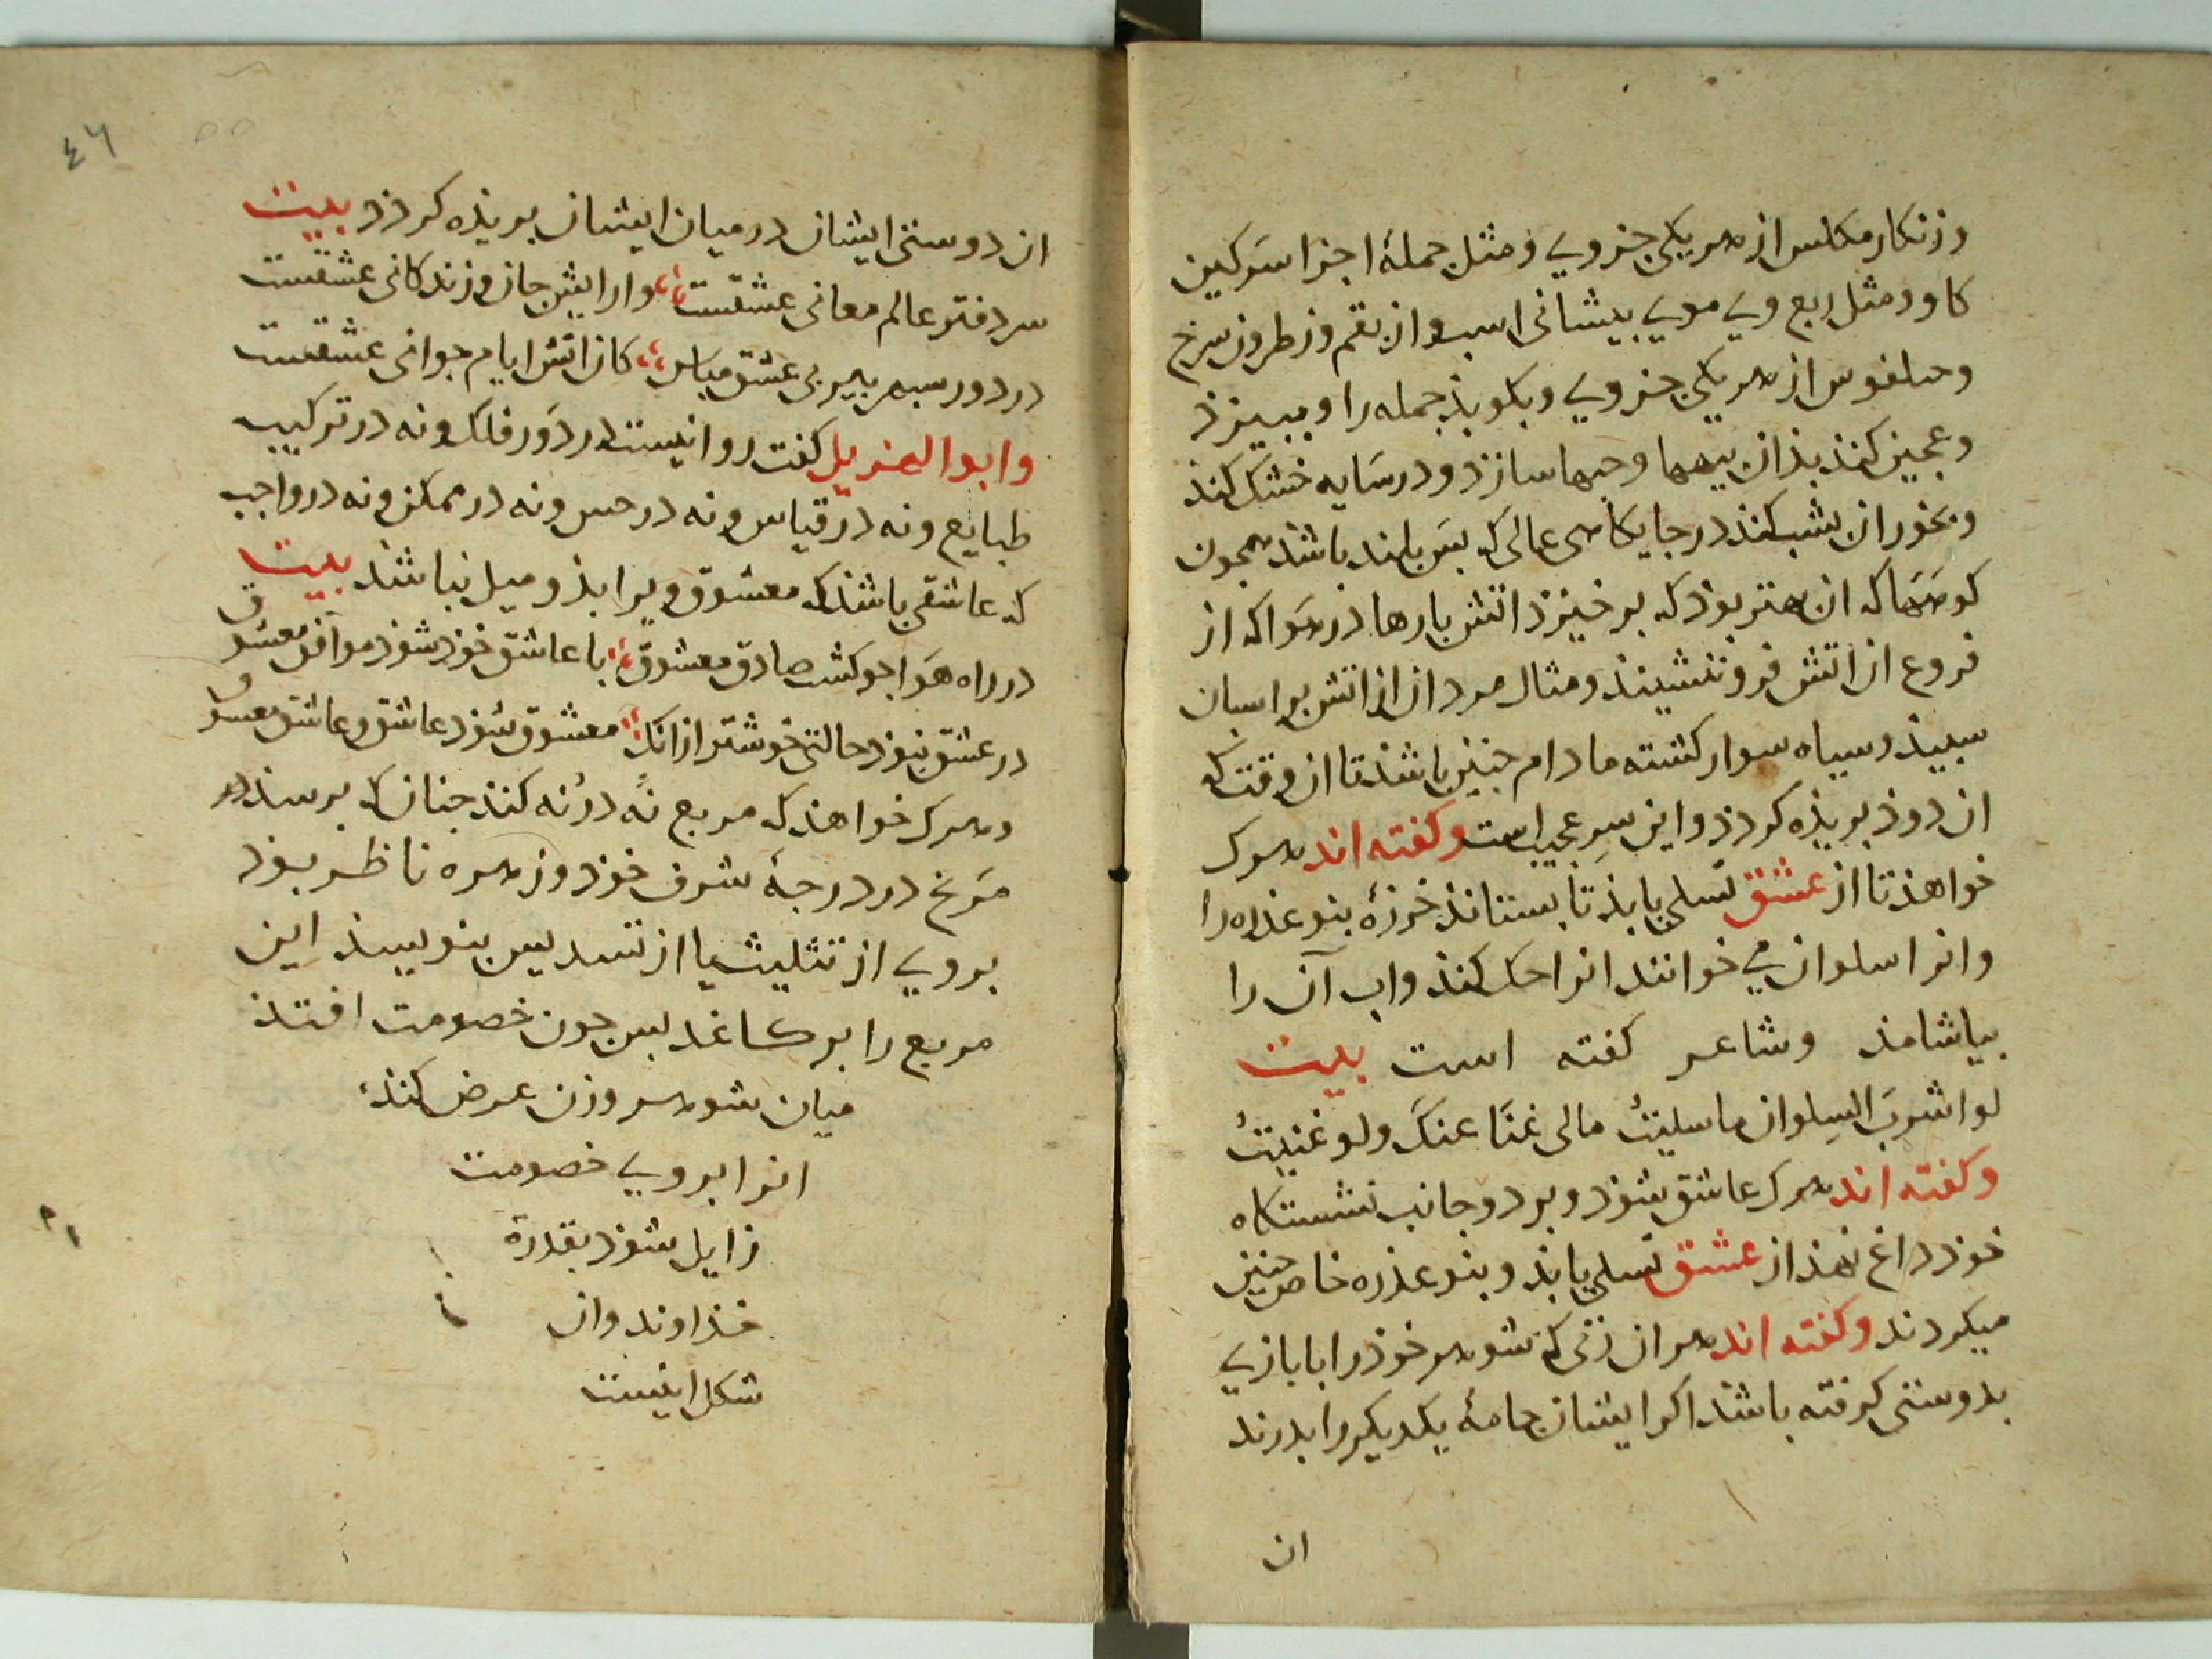 وزنکار مکلس از هر یکی جزوی ومثل جملهٔ اجزا سرکین
کاو ومثل ربع وی موی پیشانی اسب وان بقم وزطرون سرخ
از هر یکی جزوی وبکوبذ جمله را وببیزذ
وعجین کنذ بذان پیهها وحبها سازذ ودر سَایه خشک کند
وبخور ان بشب کند در جایکاهی عالی که بَس بلند باشد همجون
کوههَا که ان بهتر بوذ که برخیزذ اتش بارها در هوَا که از
فروع ان اتش فرو نشیند ومثال مردان از اتش بر اسبان
سپیذ وسیاه سوار کشته مادام جنین باشذ تا ان وقت که
ان دوذ بریذه کردذ واین سِر عجیب است وکفته اند هرک
خواهذ تا از عشق تسلی یابذ تا بستانذ خرزهٔ بنو عذره را
وانرا سلوان می خوانند انرا حک کنذ واب آن را
بیاشامذ وشاعر کفته است بیت
لو اشربَ السِلوان ما سلیتُ مالی غنًا عنکَ ولو غنیتُ
وکفته اند هرک عاشق شوذ وبر دو جانب نشستکاه
خوذ داغ نهذ از عشق تسلی یابذ وبنو عذره خاص جنین
میکردند وکفته اند هر ان زنی که شوهر خوذ را بابازی
بدوستی کرفته باشذ اکر ایشان جامهٔ یکدیکر را بدرند
ان
٤٦
ان دوستی ایشان در میان ایشان بریذه کردذ بیت
سردفتر عالم معانی عشقست وارایش جان وزندکانی عشقست
در دور سپهر پیر بی عشق مباش کان اتش ایام جوانی عشقست
وابوالهزیل کفت روا نیست در دَور فلک ونه در ترکیب
طبایع ونه در قیاس ونه در حس ونه در ممکن ونه در واجب
که عاشقی باشذ که معشوق ویرا بذو میل نباشذ بیت
در راه هَوَا جو کشت صادق معشوق با عاشق خوذ شوذ موافق معشوق
در عشق نبوذ حالتی خوشتر ازانک معشوق شوذ عاشق وعاشق معشوق
وهرک خواهذ که مربع نُه در نُه کنذ جنان که برسذ
مَریخ در درجهٔ شرف خوذ وزهره ناظر بوذ
بروی از تثلیث یا از تسدیس بنویسذ این
مربع را بر کاغد بس جون خصومت افتذ
میان شوهر وزن عرض کنذ
انرا بروی خصومت
زایل شوذ بقدرة
خذاوند وان
شکل اینست